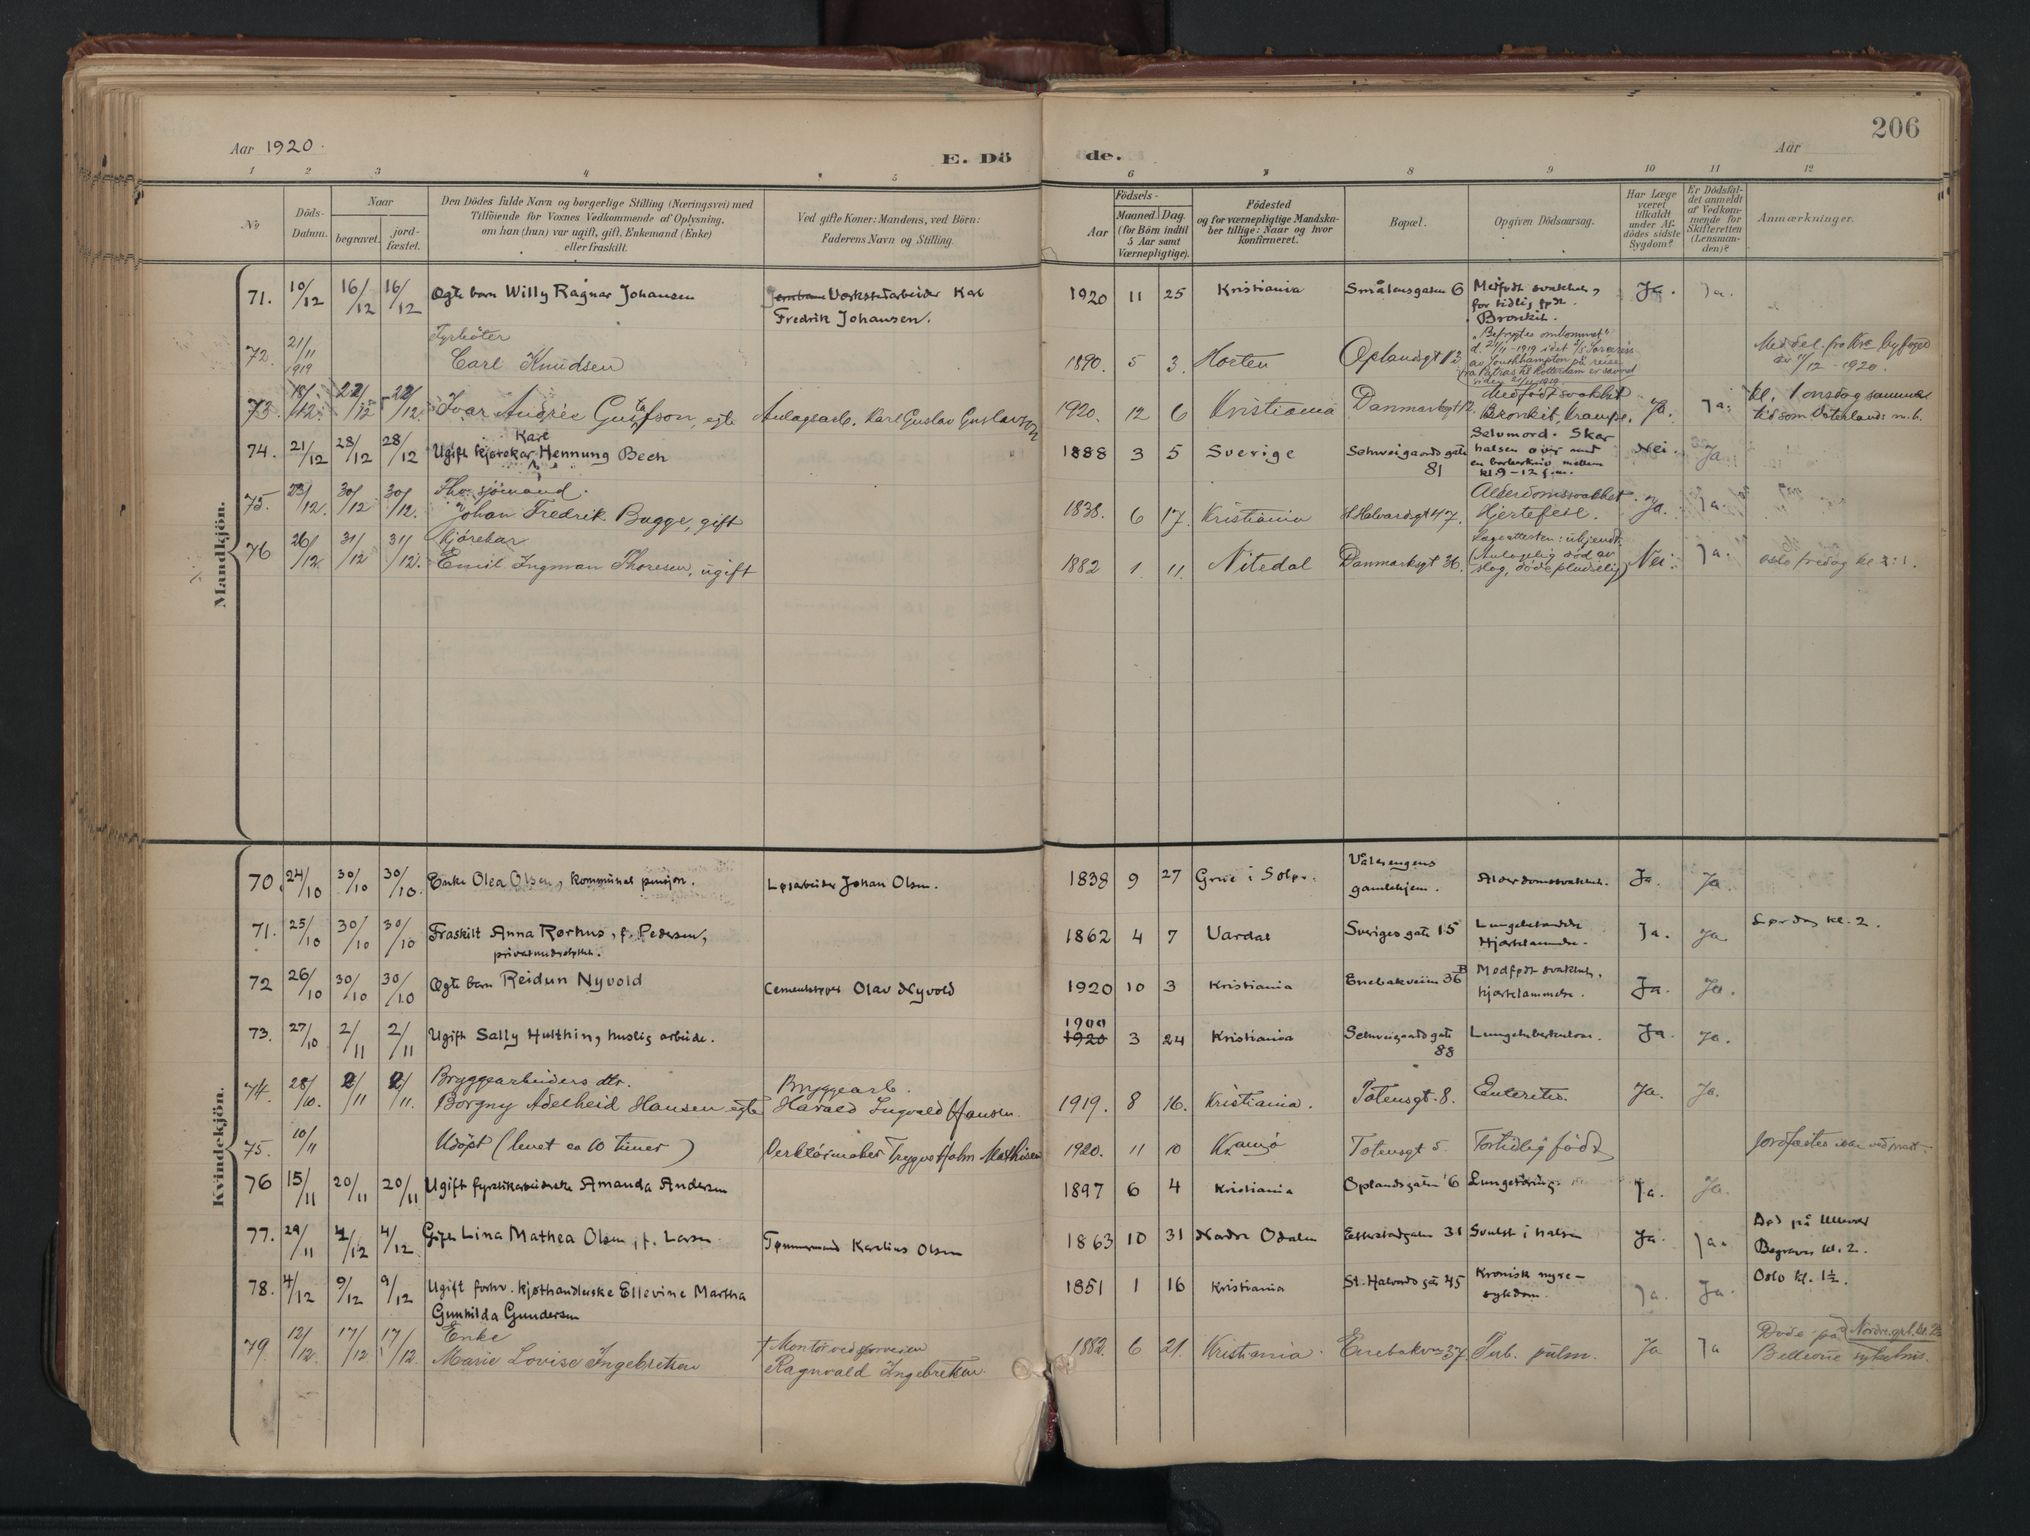 206
Aar 1920.
E. Dö
de.
Aar
1 2 3 4 5 6 7 8 9 10 11 12
No
Döds-Datum.
Naar
begravet.
jord-fæstet.
Den Dödes fulde Navn og borgerlige Stilling (Næringsvei) med
Tilföiende for Voxnes Vedkommende af Oplysning,
om han (hun) var ugift, gift, Enkemand (Enke)
eller fraskilt.
Ved gifte Koner: Mandens, ved Börn:
Faderens Navn og Stilling.
Födsels-
Aar
Maaned. Dag.
(for Börn indtil
5 Aar samt
Værnepligtige).
Födested
og for værnepligtige Mandska-
ber tillige: Naar og hvor
konfirmeret.
Bopæl.
Opgiven Dödsaarsag.
Har Læge
været
tilkaldt
under Af-
dödes sidste
Sygdom?
Er Dödsfal-
det anmeldt
af Vedkom-
mende for
Skifteretten
(Lensman-
den)?
Anmærkninger.
Mandkjön.
71. 10/12 16/12 16/12 Ægte barn Willy Ragnar Johansen Verkstedarbeider Karl
Fredrik Johansen. 1920 11 25 Kristiania Smålensgaten 6 Medfødt svakhet,
for tidlig født.
Bronkit. Ja. Ja.
72. 21/11 1919 Fyrbøter
Carl Knudsen 1890. 5 3. Horten Oplandsgt 13 "Befrygtes omkommet"
d. 21/11-1919 idet
av Southhampton på reise
fra Patras til Rotterdam er savnet
siden 21/11 1919. Meddel. fra Kra byfoged
av 11/12-1920.
73. 18/12. 22/12 22/12. Ivar Andrée Gustafson, egte Anlægsarb. Karl Gustav Gustavson 1920. 12 6 Kristiania Danmarksgt 12. Medfødt svakhet
Bronkit, Krampe. Ja. Ja. kl. 1 onsdag sammen
tid som Vaterland: m.b.
74. 21/12 28/12 28/12 Ugift kjørekar Karl Hennung Bech 1888 3 5 Sverige Schweigaards gate
81 Selvmord. Skar
halsen over med
en barberkniv mellem
kl. 9-12 f.m. Nei. Ja
75. 23/12. 30/12 30/12. Fhv. sjømand.
Johan Fredrik Bugge, gift 1838. 6 17. Kristiania St Halvardsgt 47. Alderdomssvakhet
Hjertefeil. Ja. Ja.
76 26/12. 31/12 31/12. Kjørekar
Emil Ingman Thoresen, ugift 1882 1 11 Nitedal Danmarksgt 36. Lægeattesten: ukjendt.
(Antagelig død av
slag, døde pludselig) Nei: Ja. Oslo fredag kl 2:1.
Kvindekjön.
70. 24/10 30/10 30/10. Enke Olea Olsen, kommunal pensjon. Løsarbeider Johan Olsen. 1838 9 27 Grue i Solør. Vålerengens
gamlehjem. Alderdomssvakhet. Ja. Ja
71. 25/10 30/10 30/10 Fraskilt Anna Rørhus, f. Pedersen,
privat understøttet. 1862 4 7 Vardal Sverigesgate 15 Lungebetændelse
Hjertelammelse. Ja. Ja Lørdag kl. 2.
72 26/10 30/10 30/10 Ægte barn Reidun Nyvold Cementstøper Olav Nyvold 1920 10 3 Kristiania Enebakveien 36 B Medfødt svakhet,
hjertelammelse. Ja. Ja.
73. 27/10 2/11 2/11 Ugift Sally Hulthin, huslig arbeide. 1900
1920 3 24 Kristiania Schweigaards gate
88 Lungetuberkulose. Ja. Ja.
74. 28/10. 2/11 2/11. Bryggearbeiders dtr.
Borgny Adelheid Hansen egte Bryggearb.
Harald Ingvald Hansen. 1919. 8 16. Kristiania. Totensgt. 8. Enterites. Ja. Ja.
75. 10/11 Udøpt (levet ca 10 timer) Verktøimaker Trygve Holm Mathisen 1920. 11 10 Kr.ania Totensgt 5. Fortidlig født Jordfæstes
76 15/11 20/11 20/11 Ugift fyrstikarbeiderske Amanda Andersen 1897 6 4 Kristiania Oplandsgaten 6 Lungetæring. Ja. Ja.
77. 29/11 4/12 4/12. Gift Lina Mathea Olsen, f. Larsen. Tømmermand Karelius Olsen 1863 10 31 Nordre Odalen Eskestadgaten 31 Svulst i halsen Ja Ja. Død på Ullevål
Begraves kl. 2.
78. 4/12 9/12 9/12 Ugift forhv. kjøthandlerske Ellevine Martha
Gunhilda Gundersen 1851 1 16 Kristiania St. Halvards gate 45 Kronisk nyre-
sykdom. Ja. Ja. Oslo kl. 1½.
79. 12/12. 17/12 17/12. Enke
Marie Lovise Ingebretsen † Montør ved sporveien
Ragnvald Ingebretsen. 1882. 6 21. Kristiania. Enebakvn 37. Tub. pulm. Ja Ja Døde på Nordre grl. kl. 2½
Bellevue sykehus.